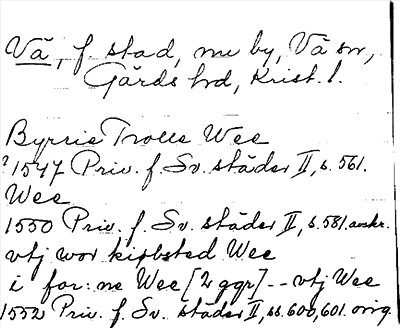 Vä, f stad, nu by, Vä sn,
Gärds hd, Krist. l.
Byrrie Trolle Wee
?1547 Priv. f. Sv. städer II, s. 561.
Wee
1550 Priv. f. Sv. städer II, s. 581. avskr.
vtj wor kiøbsted Wee
i for:ne Wee [2 ggr] -- vtj Wee
1552 Priv. f. Sv. städer II, ss. 600, 601. orig.